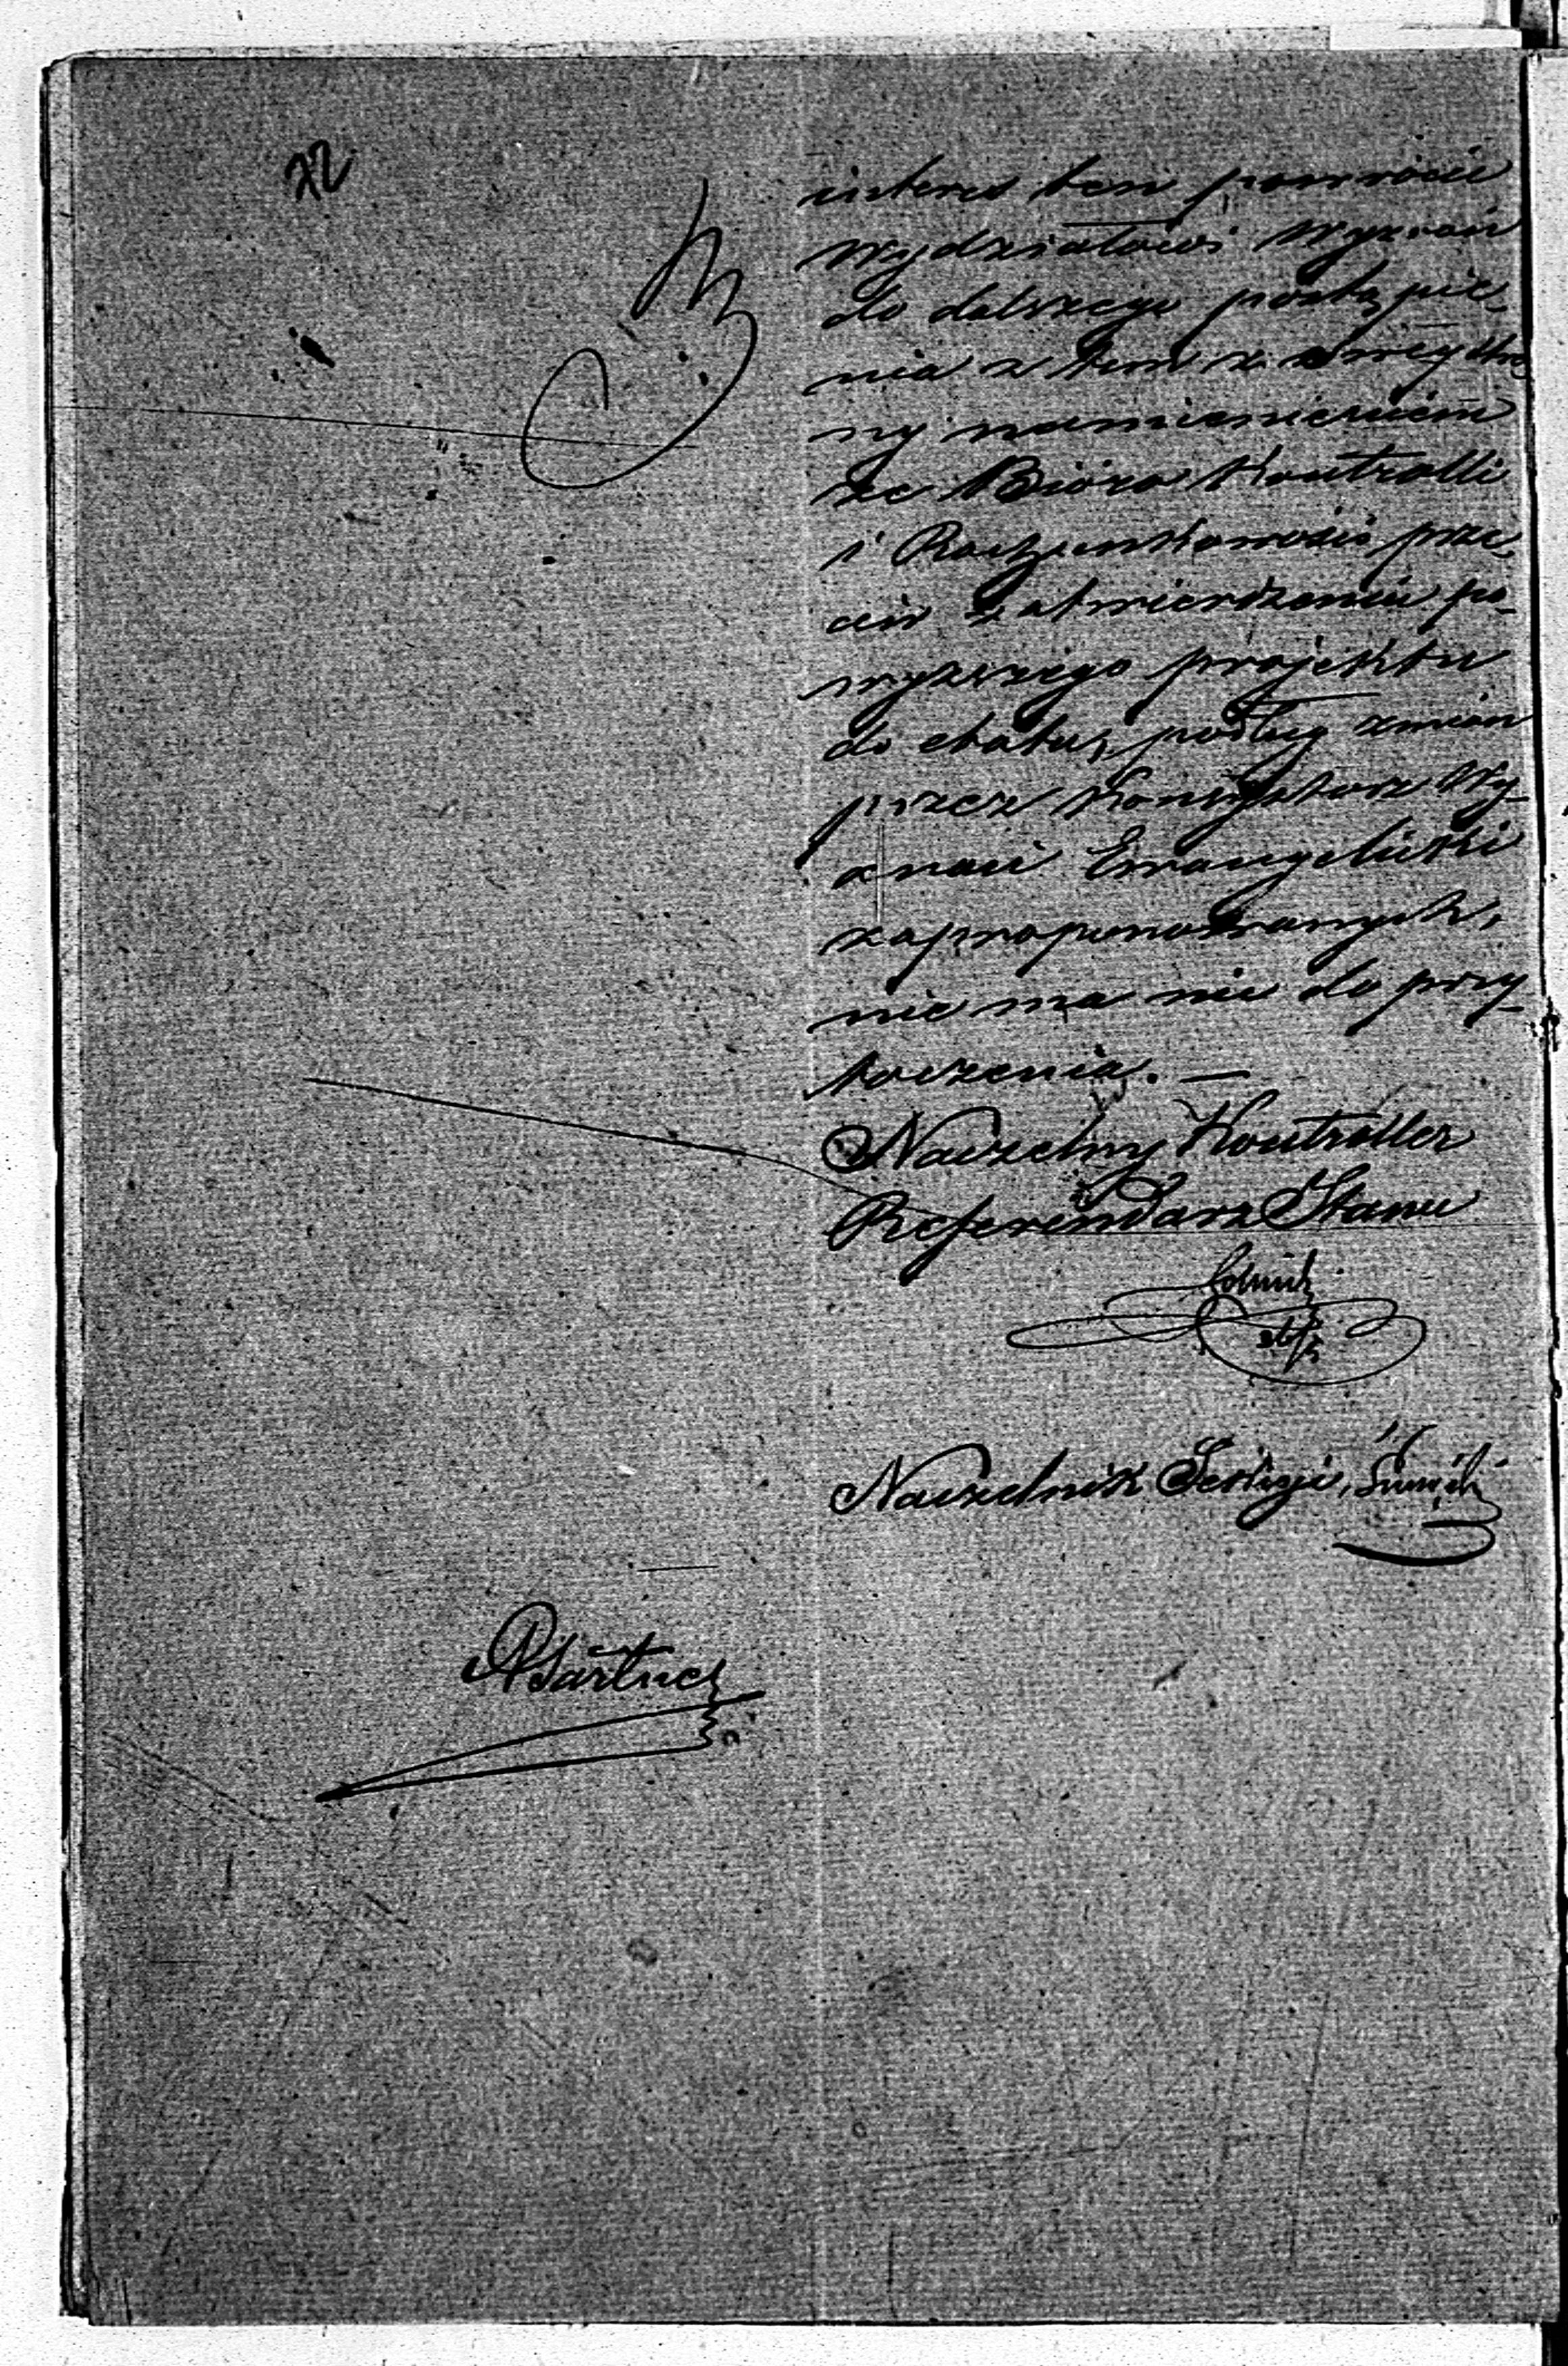 72
interes ten powrócić
Wydziałowi Wyznań
do dalszego postąpie-
nia z tem z
ny namienieniem
że Bióro Kontrolli
i Rachunkowości prze-
ciw zatwierdzeniu po-
wyższego projektu
do etatu, podług zmian
przez Konsystorz Wy-
znań Ewangelicki
zaproponowanych,
nie ma nic do przy-
toczenia. —
Naczelny Kontroller
Referendarz Stanu
26/5
Naczelnik Sekcyi,